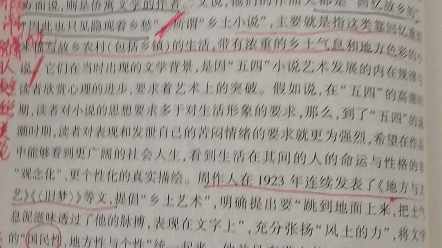 则是仿寓文学的作者。"又说,他们的作品大都是"回忆故乡的"
"因此也只见隐现着乡愁"。所谓"乡土小说",主要就是指这类靠回忆重
写故乡农村(包括乡镇)的生活,带有浓重的乡土气息和地方色彩的小
说。它们在当时出现的文学背景,是因"五四"小说艺术发展的内在规律
读者欣赏心理的进步,要求着艺术上的突破。假如说,在"五四"的高潮
期,读者对小说的思想要求多于对生活形象的要求,那么,到了"五四"的
潮时期,读者对表现和发泄自己的苦闷情绪的要求就更为强烈,希望在作
中能够看到更广阔的社会人生,看到生活在其间的人的命运与性格的
"观念化"、更个性化的真实描绘。周作人在1923年连续发表了《地方与文
艺》《〈旧梦〉》等文,提倡"乡土艺术",明确提出要"跳到地面上来,把土气
息泥滋味透过了他的脉搏,表现在文字上",充分张扬"风土的力",将文
的"国民性、地方性与个性"统一起来。